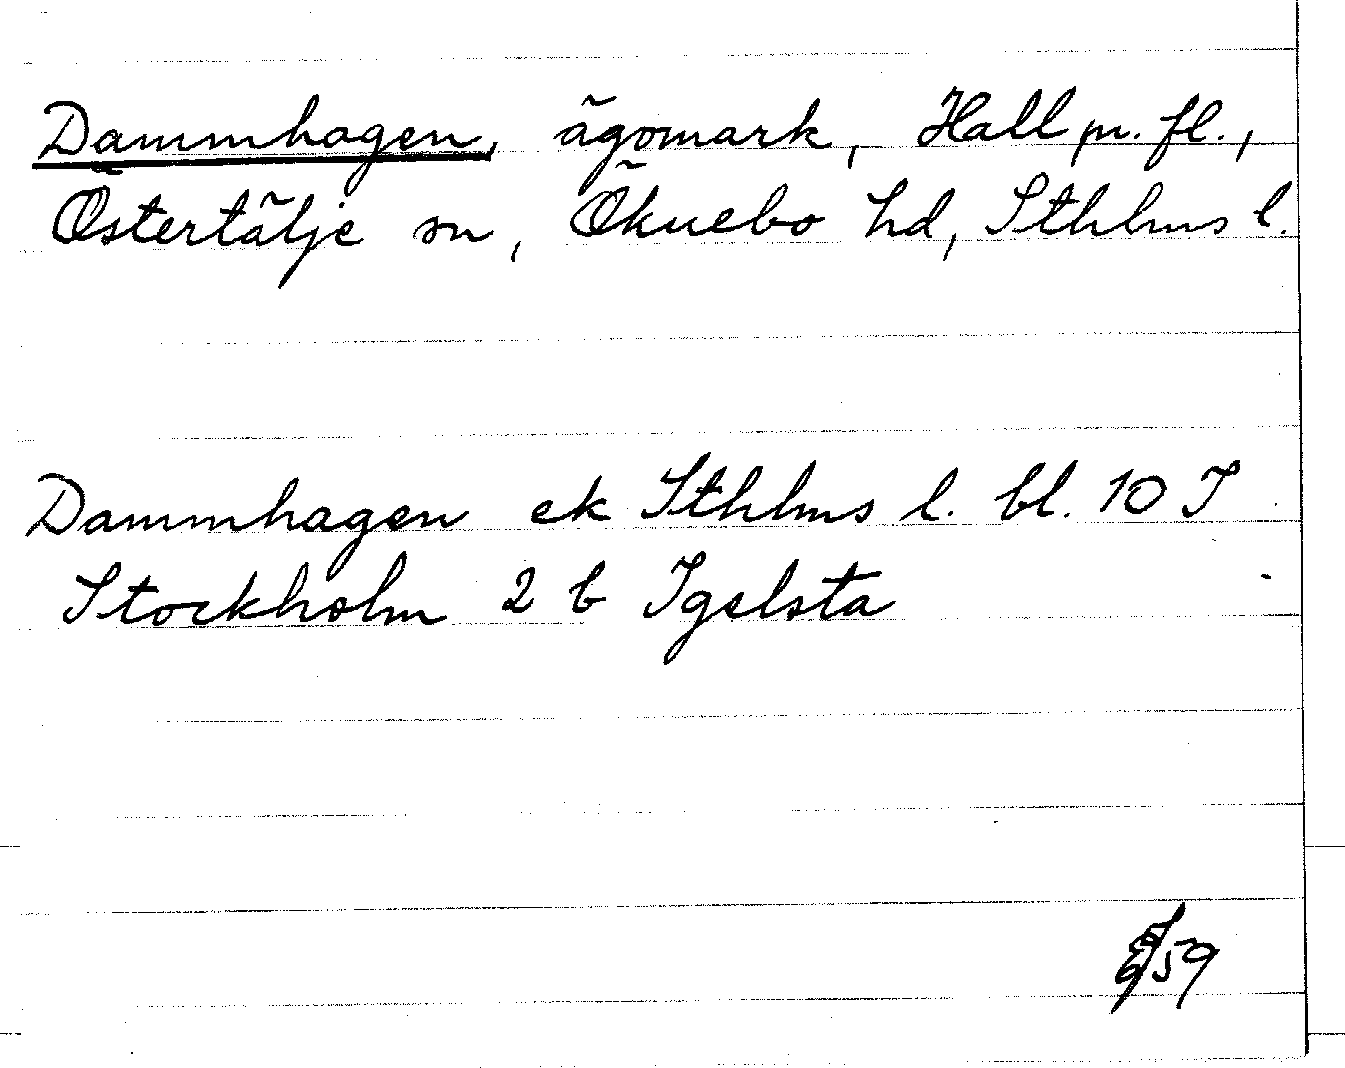 Dammhagen, ägomark, Hall m. fl.,
Östertälje sn, Öknebo hd, Sthlms l.
Dammhagen ek Sthlms l. bl. 10 I
Stockholm 2 b Igelsta
59